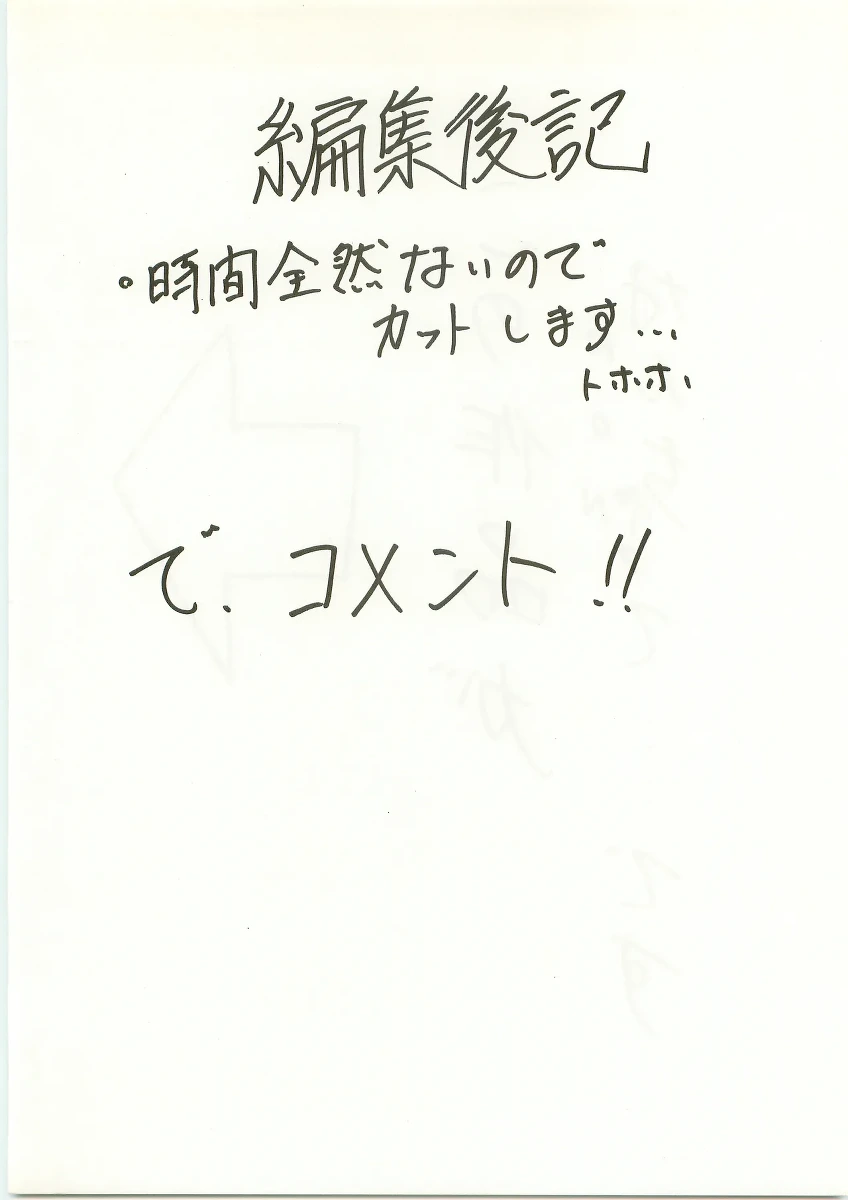 編集後記
。時間全然ないので
カットします...
トホホ、
で、コメント!!